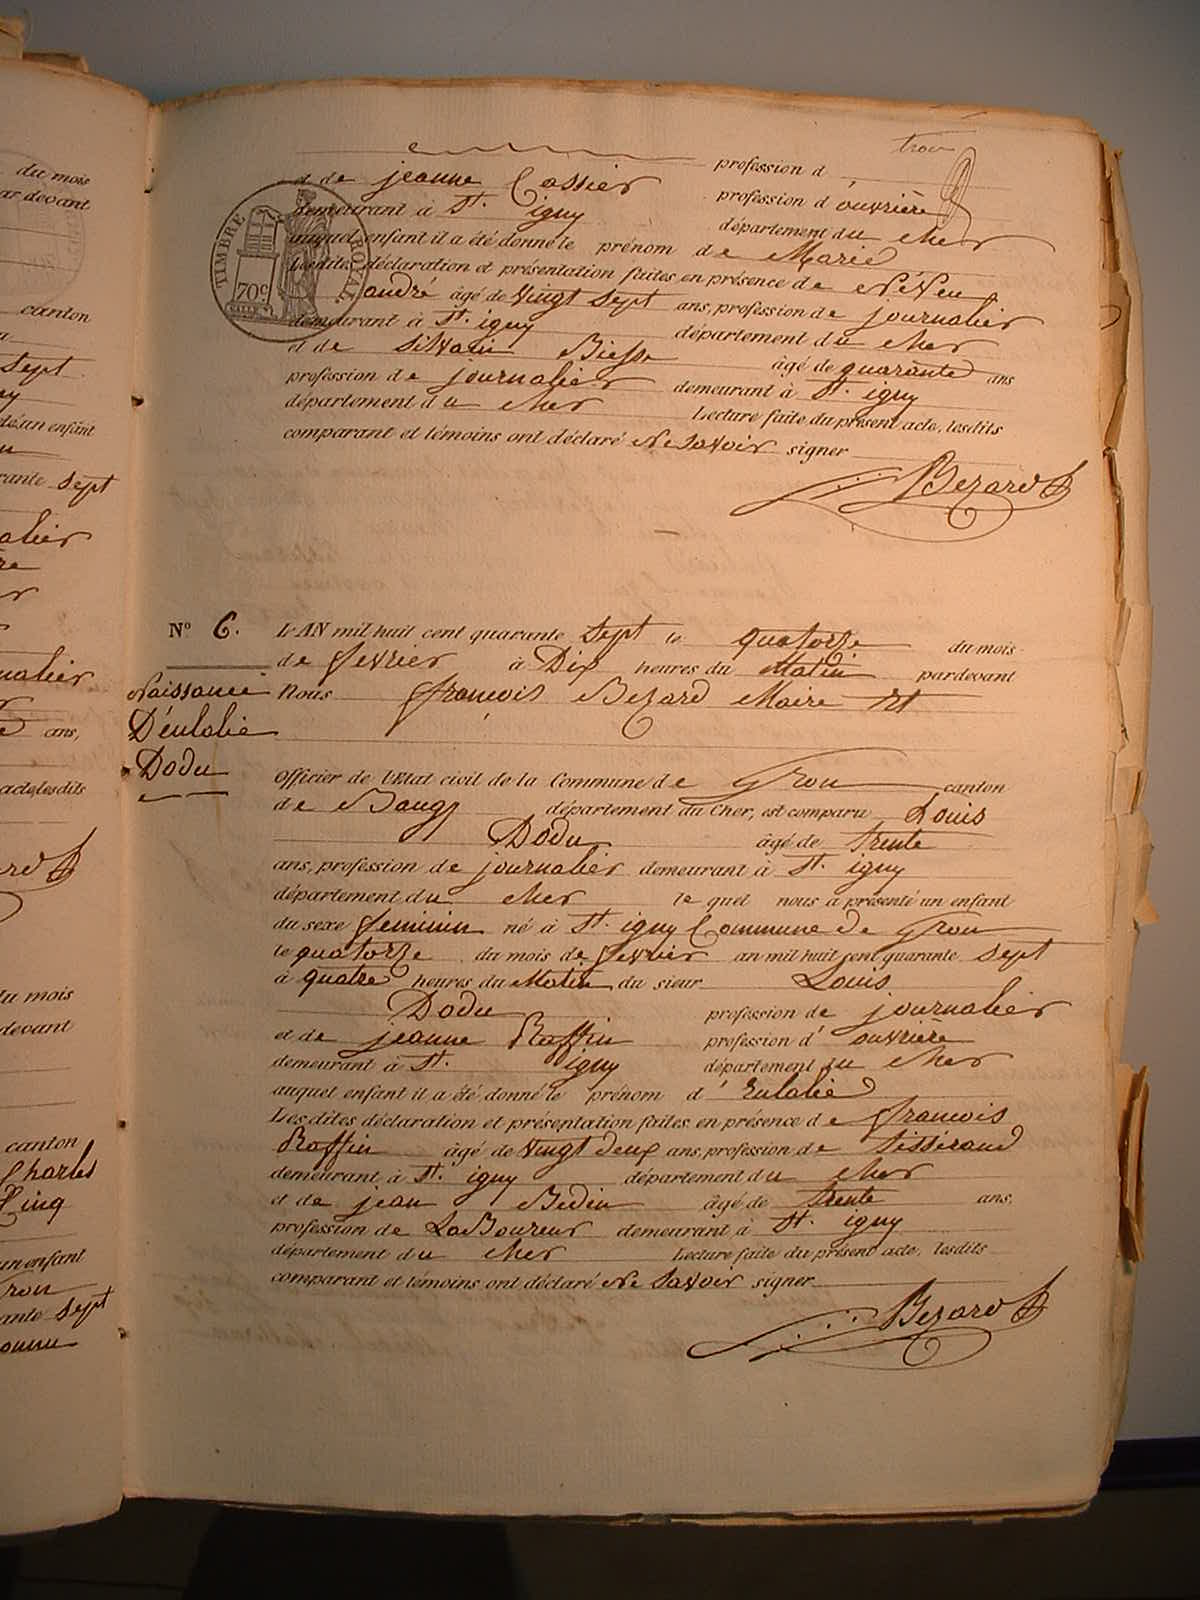 du mois
ar devant
canton
sept
d'un enfant
rante sept
alier
nalier
ans,
acte, lesdits
du mois
devant
canton
Charles
Cinq
un enfant
Gron
ante sept
profession d
et de jeanne Cassier profession d'ouvrière
demeurant à St. igny département du cher
auquel enfant il a été donné le prénom de Marie
Lesdites déclaration et présentation faites en présence de NéVeu
andré âgé de Vingt sept ans, profession de journalier
demeurant à St. igny département du cher
et de silvain Biesse âgé de quarante ans
profession de journalier demeurant à St. igny
département du cher Lecture faite du présent acte, lesdits
comparant et témoins ont déclaré Ne savoir signer
Bezard
TIMBRE ROYAL
70c
No 6. L'AN mil huit cent quarante sept le quatorze du mois
de fevrier à Dix heures du Matin pardevant
Naissance Nous françois Bezard Maire et
D'eulalie
Dodu Officier de l'Etat civil de la Commune de Gron canton
de Baugy département du Cher, est comparu Louis
Dodu âgé de trente
ans, profession de journalier demeurant à St. igny
département du cher le quel nous a présenté un enfant
du sexe feminin né à St. igny Commune de Gron
le quatorze du mois de fevrier an mil huit cent quarante sept
à quatre heures du Matin du sieur Louis
Dodu profession de journalier
et de jeanne Raffin profession d'ouvrière
demeurant à St. igny département du cher
auquel enfant il a été donné le prénom d'Eulalie
Les dites déclaration et présentation faites en présence de françois
Raffin âgé de vingt deux ans, profession de tisserand
demeurant à St. igny département du cher
et de jean Bedin âgé de trente ans,
profession de LaBoureur demeurant à St. igny
département du cher Lecture faite du présent acte, lesdits
comparant et témoins ont déclaré Ne savoir signer
Bezard